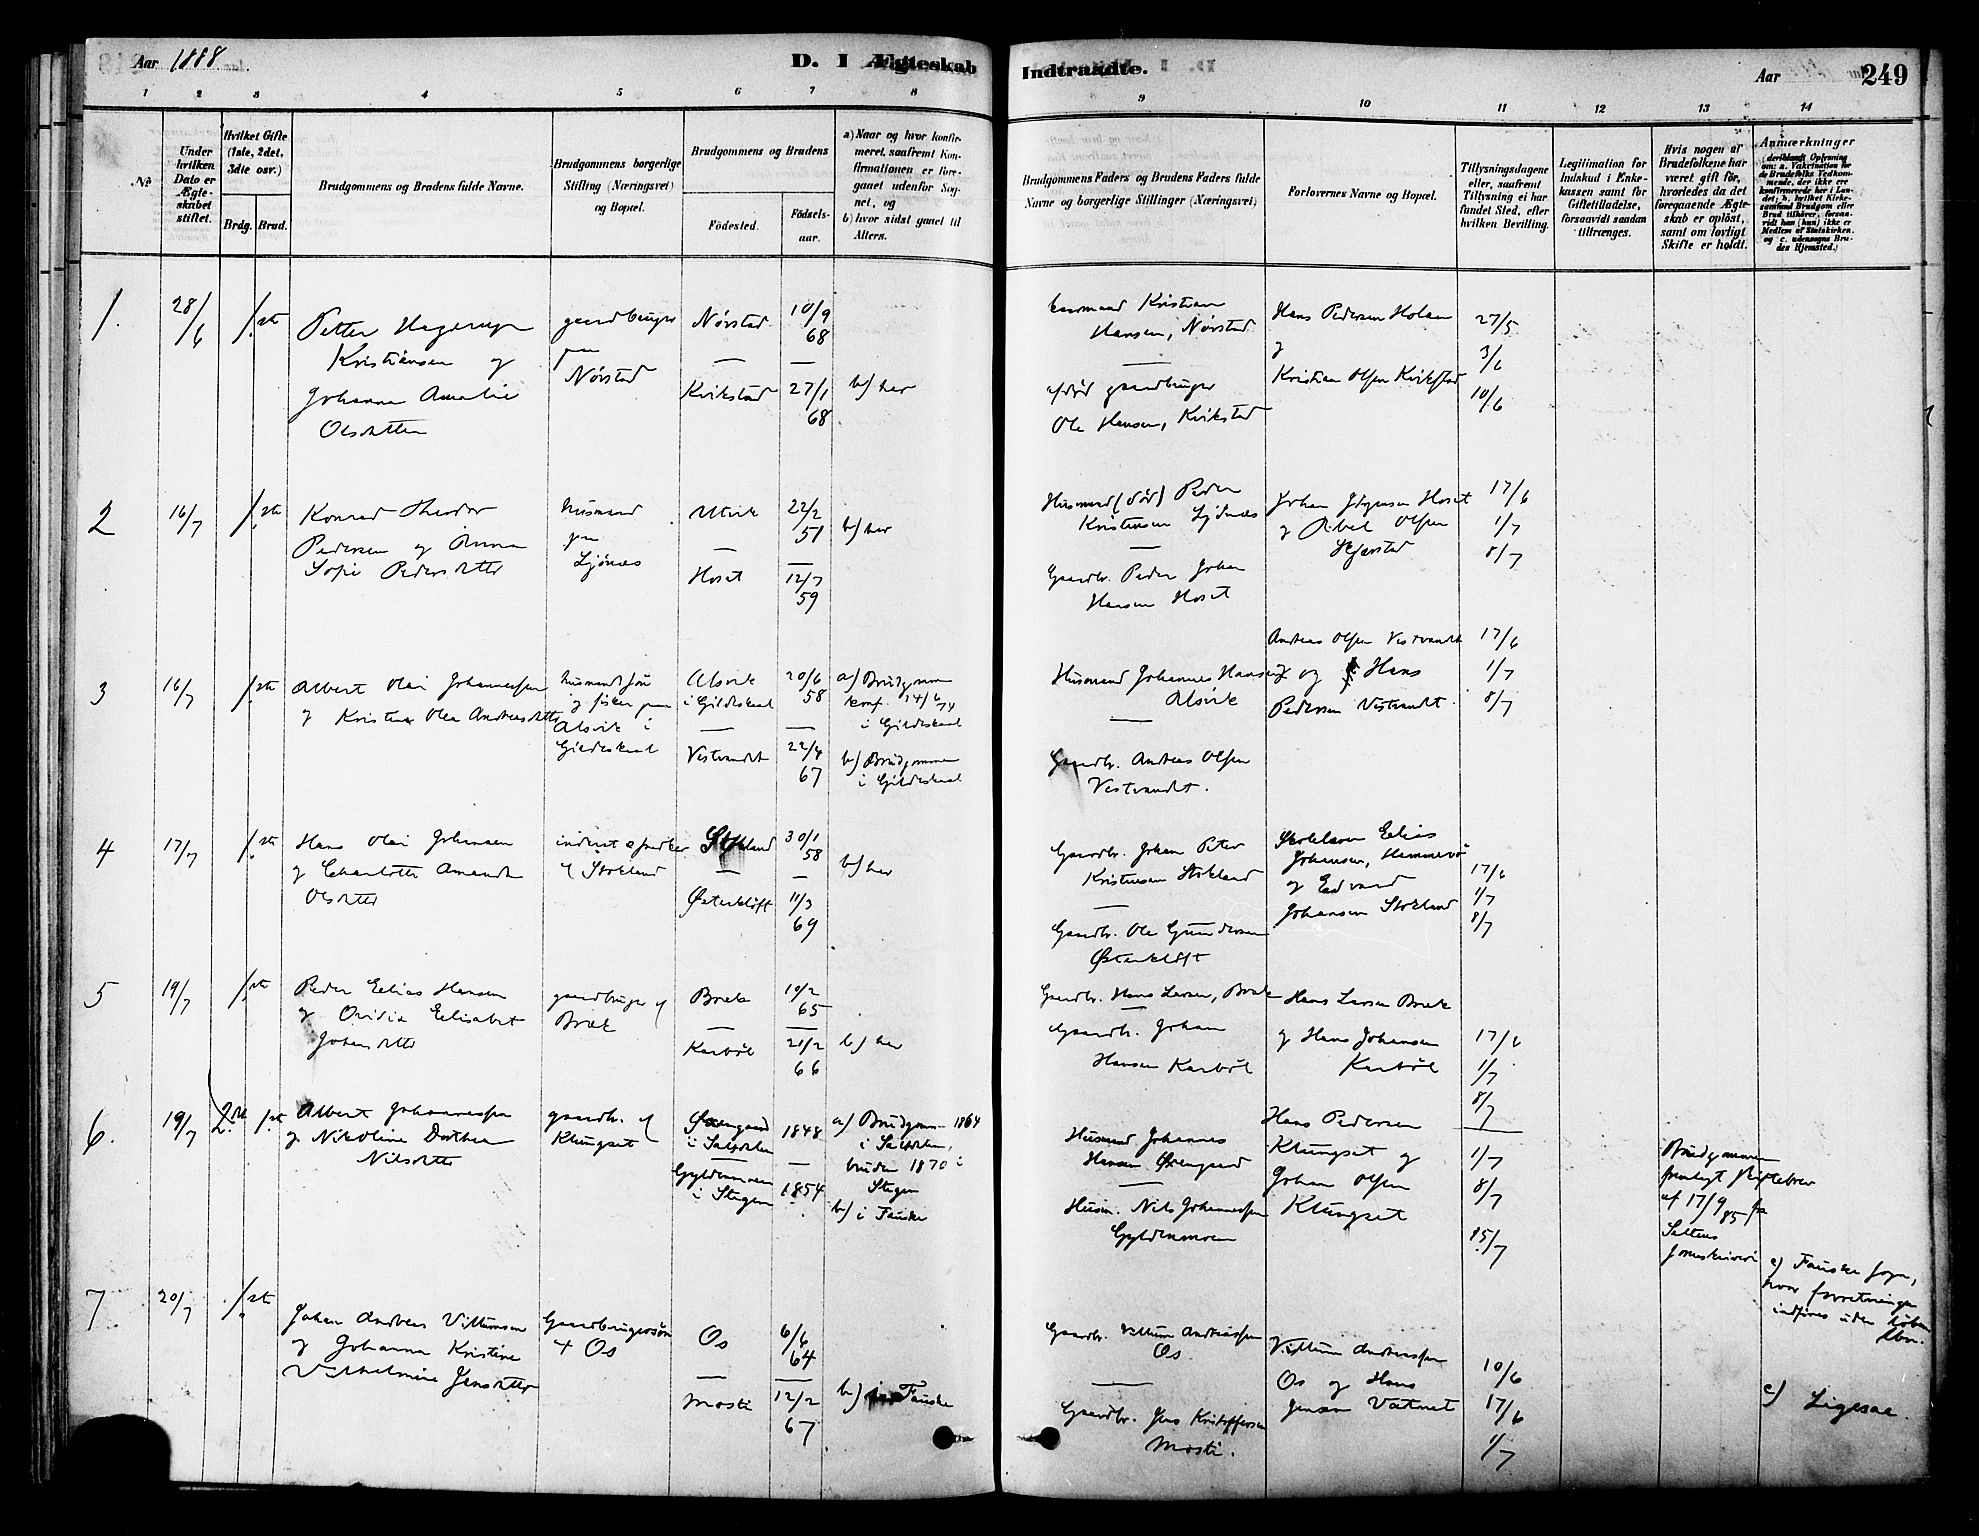 Aar 1888
D. I Ægteskab
Indtraadte.
Aar
249
1 2 3 4 5 6 7 8
9 10 11 12 13 14
No
Under hvilken Dato er Ægteskabet stiftet.
Hvilket Gifte (1ste, 2det, 3die osv.)
Brdg. Brud.
Brudgommens og Brudens fulde Navne.
Brudgommens borgerlige Stilling (Næringsvei) og Bopæl.
Brudgommens og Brudens
Födested.
Födsels-aar.
a) Naar og hvor konfirmeret, saafremt Konfirmationen er foregaaet udenfor Sognet, og
b) hvor sidst gaaet til Alters.
Brudgommens Faders og Brudens Faders fulde Navne og borgerlige Stillinger (Næringsvei)
Forlovernes Navne og Bopæl.
Tillysningsdagene eller, saafremt Tillysning ei har fundet Sted, efter hvilken Bevilling.
Legitimation for Indskud i Enkekassen samt for Giftetilladelse, forsaavidt saadan tiltrænges.
Hvis nogen af Brudefolkene har været gift för, hvorledes da det foregaaende Ægteskab er oplöst, samt om lovligt Skifte er holdt.
Anmærkninger
1. 28/6 1ste
Petter Hagerup
Kristiansen og
Johanna Amalie
Olsdatter
gaardbruger
paa
Nørstad
Nørstad
10/9
68
Kvikstad
27/1
68
b) her
Kristian
Hansen, Nørstad
gaardbruger
Ole Hansen, Kvikstad
Hans Pedersen Holan
og
Kristian Olsen Kvikstad
27/5
3/6
10/6
2 16/7 1ste
Konrad Theodor
Pedersen og Anna
Sofie Pedersdatter
husmand
paa
Ljønæs
Utvik
22/2
51
Hoset
12/7
59
b) her
Husmand (død) Peder
Kristensen Ljønæs
Gaardbr. Peder Johan
Hansen Hoset
Johan Jörgensen Hoset
og Abel Olsen
Skjerstad
17/6
1/7
8/7
3 16/7 1ste
Albert Olai Johannessen
og Kristine Olea Andreasdatter
husmandssøn
og fisker paa
Alsvik i
Gildeskaal
Alsvik
i Gildeskaal
20/6
58
Vestvandet
22/4
67
a) Brudgommen
konf. 14/6 74
i Gildeskaal
b) Brudgommen
i Gildeskaal
Husmand Johannes Hansen
Alsvik
Gaardbr. Andreas Olsen
Vestvandet.
Andreas Olsen Vestvandet
og Hans
Pedersen Vestvandet.
17/6
1/7
8/7
4 17/7 1ste
Hans Olai Johansen
og Charlotte Amanda
Olsdatter
inderst
Stokland
Stokland
30/1
58
Østerkløft
11/3
69
b) her
Gaardbr. Johan Peter
Kristensen Stokland
Gaardbr. Ole Gundersen
Østerkløft
Elias
Johansen,
og Edvard
Johansen Stokland
17/6
1/7
8/7
5 19/7 1ste
Peder Elias Hansen
og Ovidia Elisabet
Johansdatter
gaardbruger
Bræk
Bræk
10/2
65
Karbøl
21/2
66
b) her
Gaardbr. Hans Larsen, Bræk
Gaardbr. Johan
Hansen Karbøl
Hans Larsen Bræk
og Hans Johansen
Karbøl
17/6
1/7
8/7
6. 19/7 2det 1ste
Albert Johannessen
og Nikoline Dorthea
Nilsdatter
gaardbr.
Klungset
Øxengaard
i Saltdalen
1848
Gyldenmoen
i Stegen
1854
a) Brudgom. 1864
i Saltdalen,
bruden 1870 i
Stegen
b) i Fauske
Husmand Johannes
Hansen Øxengaard
Husm. Nils Johannessen
Gyldenmoen
Hans Pedersen
Klungset og
Johan Olsen
Klungset
1/7
8/7
15/7
Brudgommen
fremlagt skiftebrev
af 17/9 85 fra
Saltens
c) Fauske sogn,
hvor forretningen
indføres uden løbe
No.
7. 20/7 1ste
Johan Andreas Villumsen
og Johanna Kristine
Vilhelmine Jensdatter
Gaardbrugersøn
Os
Os
6/6
64
Mosti
12/2
67
b) i Fauske
Gaardbr. Villum Andreassen
Os.
Gaardbr. Jens Kristoffersen
Mosti.
Villum Andreassen
Os og Hans
Jensen Vatnet
10/6
17/6
1/7
c) Ligesaa.